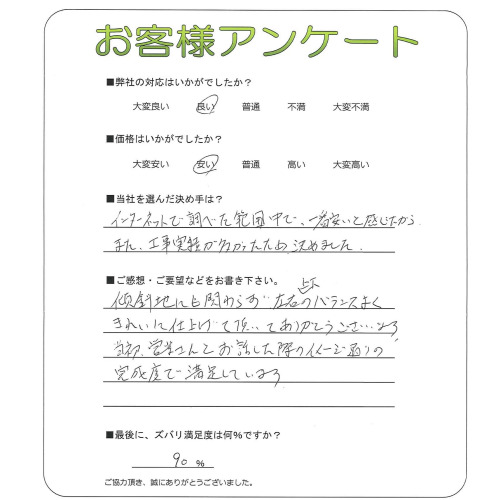 お客様アンケート
■弊社の対応はいかがでしたか?
大変良い 良い 普通 不満 大変不満
■価格はいかがでしたか?
大変安い 安い 普通 高い 大変高い
■当社を選んだ決め手は?
インターネットで調べた範囲中で、一番安いと感じたから
また、工事実績が多かったため、決めました。
■ご感想・ご要望などをお書き下さい。
傾斜地にも関わらず 左右上下のバランスよく
きれいに仕上げて頂いてありがとうございます
当初、営業さんとお話した際のイメージ通りの
完成度で満足しています
■最後に、ズバリ満足度は何%ですか?
90 %
ご協力頂き、誠にありがとうございました。